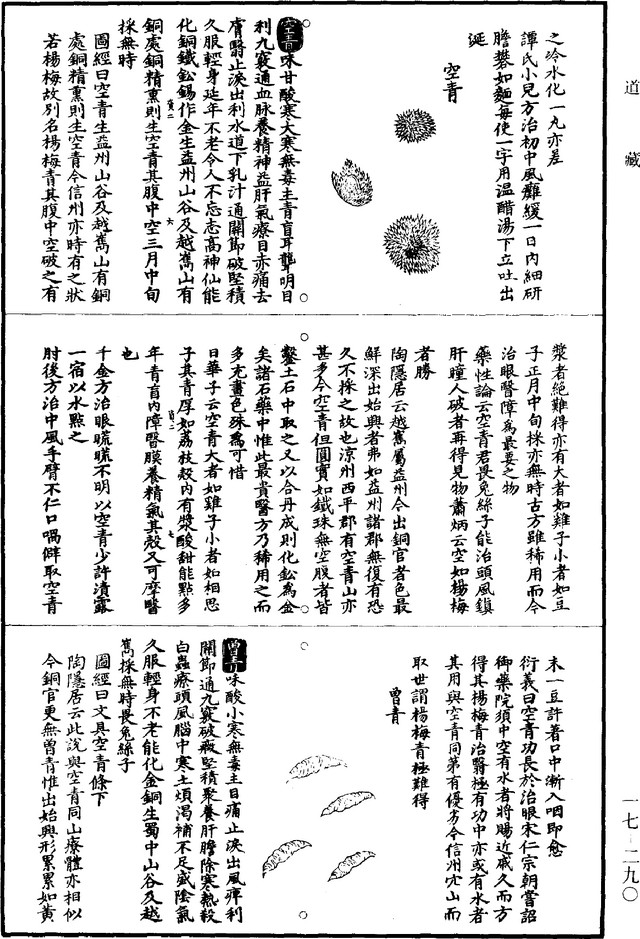 道藏
之冷水化一丸亦差
譚氏小兒方治初中風癱緩一日內細研
膽礬如麵每使一字用溫醋湯下立吐出
涎
空青
空青味甘酸寒大寒無毒主青盲耳聾明目
利九竅通血脉養精神益肝氣療目赤痛去
膚翳止淚出利水道下乳汁通關節破堅積
久服輕身延年不老令人不忘志高神仙能
化銅鐵鈆錫作金生益州山谷及越嶲山有
銅處銅精熏則生空青其腹中空三月中旬
採無時
圖經曰空青生益州山谷及越嶲山有銅
處銅精熏則生空青今信州亦時有之狀
若楊梅故別名楊梅青其腹中空破之有
漿者絕難得亦有大者如雞子小者如豆
子正月中旬採亦無時古方雖稀用而今
治眼翳障為最要之物
藥性論云空青君畏兔絲子能治頭風鎮
肝瞳人破者再得見物蕭炳云空如楊梅
者勝
陶隱居云越嶲屬益州今出銅官者色最
鮮深出始興者弗如益州諸郡無復有恐
久不採之故也涼州西平郡有空青山亦
甚多今空青但圓實如鐵珠無空腹者皆
鑿土石中取之又以合丹成則化鈆為金
矣諸石藥中惟此最貴醫方乃稀用之而
多充畫色殊為可惜
日華子云空青大者如雞子小者如相思
子其青厚如荔枝殼內有漿酸甜能點多
年青盲內障翳膜養精氣其殼又可摩翳
也
千金方治眼䀮䀮不明以空青少許漬露
一宿以水點之
肘後方治中風手臂不仁口喎僻取空青
末一豆許著口中漸入咽即愈
衍義曰空青功長於治眼宋仁宗朝嘗詔
御藥院須中空有水者將賜近戚久而方
得其楊梅青治翳極有功中亦或有水者
其用與空青同第有優劣今信州穴山而
取世謂楊梅青極難得
曾青
曾青味酸小寒無毒主目痛止淚出風痺利
關節通九竅破癥堅積聚養肝膽除寒熱殺
白蟲療頭風腦中寒止煩渴補不足盛陰氣
久服輕身不老能化金銅生蜀中山谷及越
嶲採無時畏兔絲子
圖經曰文具空青條下
陶隱居云此說與空青同山療體亦相似
今銅官更無曾青惟出始興形累累如黃
一七-二九〇